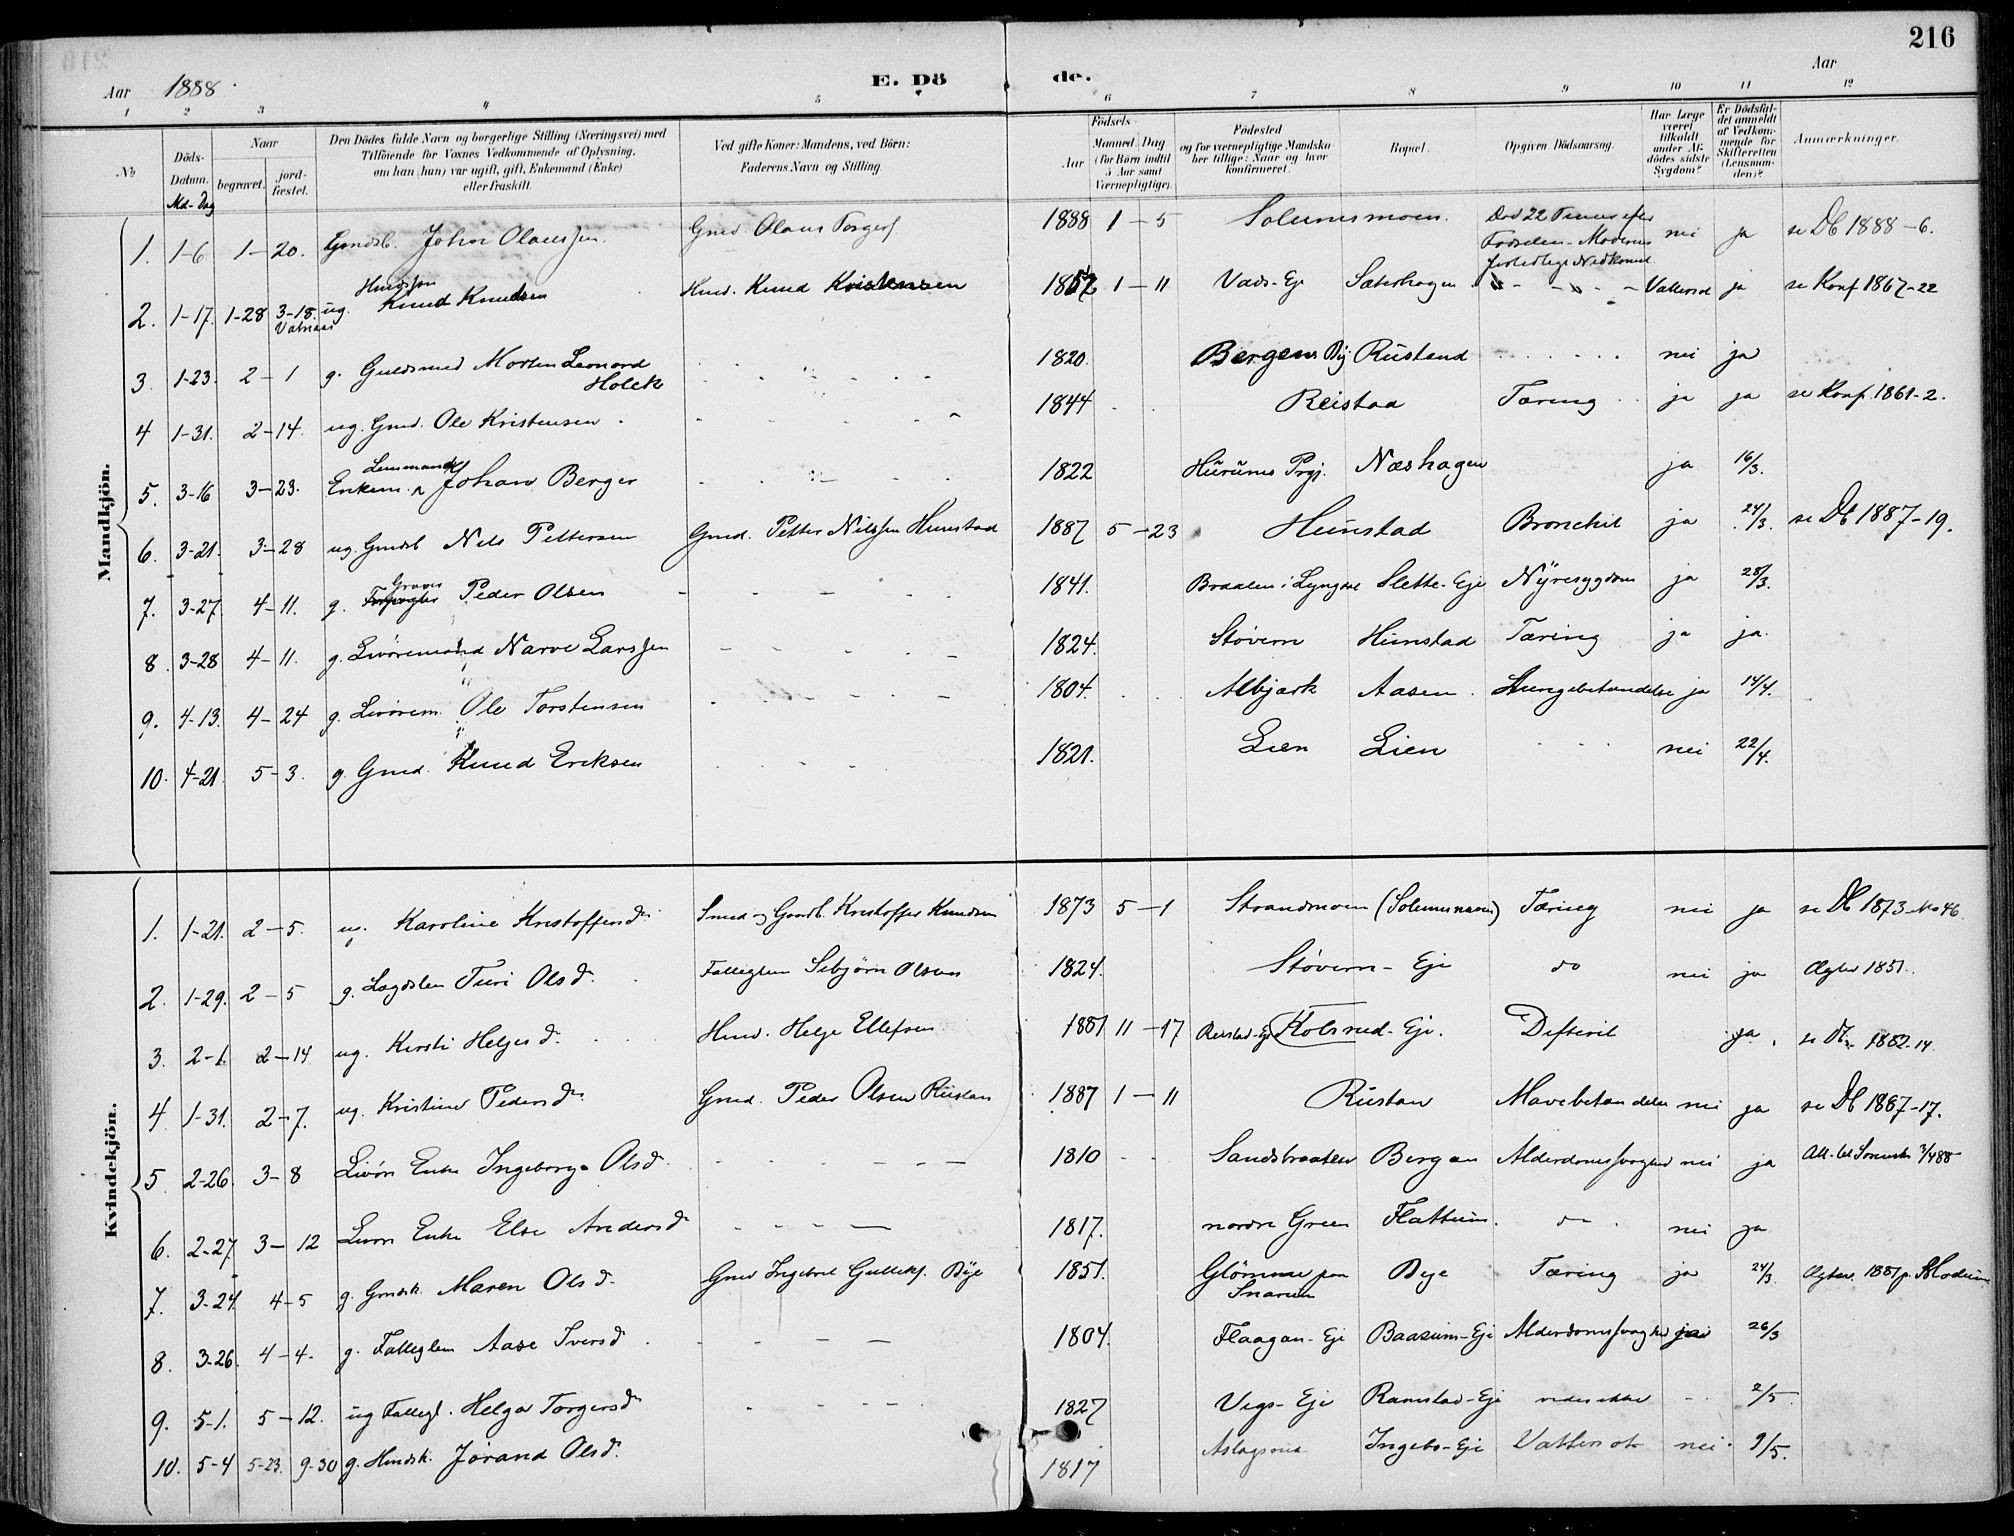 216
Aar 1888.
E. Dö de.
Aar
1 2 3 4 5 6 7 8 9 10 11 12
№
Döds-Datum.
Md - Dag
Naar
begravet.
jordfæstet.
Den Dödes fulde Navn og borgerlige Stilling (Næringsvei) med Tilföiende for Voxnes Vedkommende af Oplysning, om han (hun) var ugift, gift, Enkemand (Enke) eller fraskilt.
Ved gifte Koner: Mandens, ved Börn: Faderens Navn og Stilling.
Födsels-
Aar
Maaned Dag
(for Börn indtil 5 Aar samt Værnepligtige).
Födested
og for værnepligtige Mandskaber tillige: Naar og hvor konfirmeret.
Bopæl.
Opgiven Dödsaarsag.
Har Læge været tilkaldt under Afdödes sidste Sygdom?
Er Dödsfaldet anmeldt af Vedkommende for Skifteretten (Lensmanden)?
Anmærkninger.
Mandkjön.
1. 1-6 1-20. Gmdsb. John Olaussen. Gmd. Olaus Torgers. 1888 1-5 Solumsmoen. Död 22 Timer efter Fødselen - Moderens nei ja se Db 1888-6.
2. 1-17. 1-28 3-18. ug. Knud Knudsen Hmd. Knud Kristensen 1852 1-11 Vads-Eje Sæterhagen Vattersot ja se Konf 1867-22
3. 1-23. 2-1 g. Guldsmed Morten Leonard Holck 1820. Bergens By Rustand nei ja
4 1-31. 2-14. ug. Gmd. Ole Kristensen 1844 Reistad Tæring ja ja se Konf. 1861-2.
5. 3-16 3-23. Enkem. Lensmand Johan Berger 1822 Hurums Prgj. Næshagen ja 16/3.
6. 3-21. 3-28 ug. Gmdsb Nils Pettersen Gmd. Petter Nilssen Hunstad 1887 5-23 Hunstad Bronchit ja 24/3. se Db 1887-19.
7. 3-27. 4-11. g. Graver Peder Olsen 1841. Braaten i Lyngdal Slette-Eje Nyresygdom ja 28/3.
8. 3-28 4-11. g. Livöremand Narve Larssen 1824. Stövern Hunstad Tæring ja ja.
9. 4-13. 4-24 g. Livörem. Ole Torstensen 1804. Albjark Aasen Lungebetændelse ja 14/4.
10. 4-21. 5-3. g. Gmd. Knud Eriksen 1821. Lien Lien nei 22/4.
Kvindekjön.
1. 1-21. 2-5. ug. Karoline Kristoffersd. Smed og Gmdb. Kristoffer Knudsen 1873 5-1 Strandmoen (Solumsmoen) Tæring nei ja se Db 1873-No 46.
2. 1-29. 2-5 g. Lægdslem Turi Olsd. Fattiglem Sebjörn Olsen 1824. Stövern-Eje do nei ja Ægtev 1851.
3. 2-1. 2-14 ug. Kirsti Helgesd. Hmd. Helge Ellefsen 1881 11-17 Reistad-Eje Kolsrud-Eje. Difterit ja. se Db. 1882-14.
4 1-31. 2-7. ug. Kristine Pedersd. Gmd. Peder Olsen Rustan 1887 1-11 Rustan Mavebetændelse nei ja se Db 1887-17.
5. 2-26. 3-8 Livörs Enke Ingeborg Olsd. 1810 Sandsbraaten Bergan Alderdomssvaghed nei ja
6. 2-27 3-12 Livörs Enke Else Andersd. 1817. nordre Green Flattum. do nei ja
7. 3-24. 4-5 g. Gmdsk. Maren Olsd. Gmd Ingebret Gulleks. Bye 1851. Glömme paa Snarum Bye Tæring ja 24/3. Ægtev. 1881 p. Modum
8. 3-26. 4-4. g. Fattiglem Aase Iversd. 1804. Flaagan-Eje Baasum-Eje Alderdomssvaghed 26/3
9. 5-1. 5-12. ug Fattigl. Helga Torgersd. 1827 Vegs-Eje Ramstad-Eje vides ikke 2/5.
10. 5-4 5-23. 9-30 g. Hmdsk. Jörand Olsd. 1817 Aslagsrud Ingebo-Eje Vattersot nei 9/5.